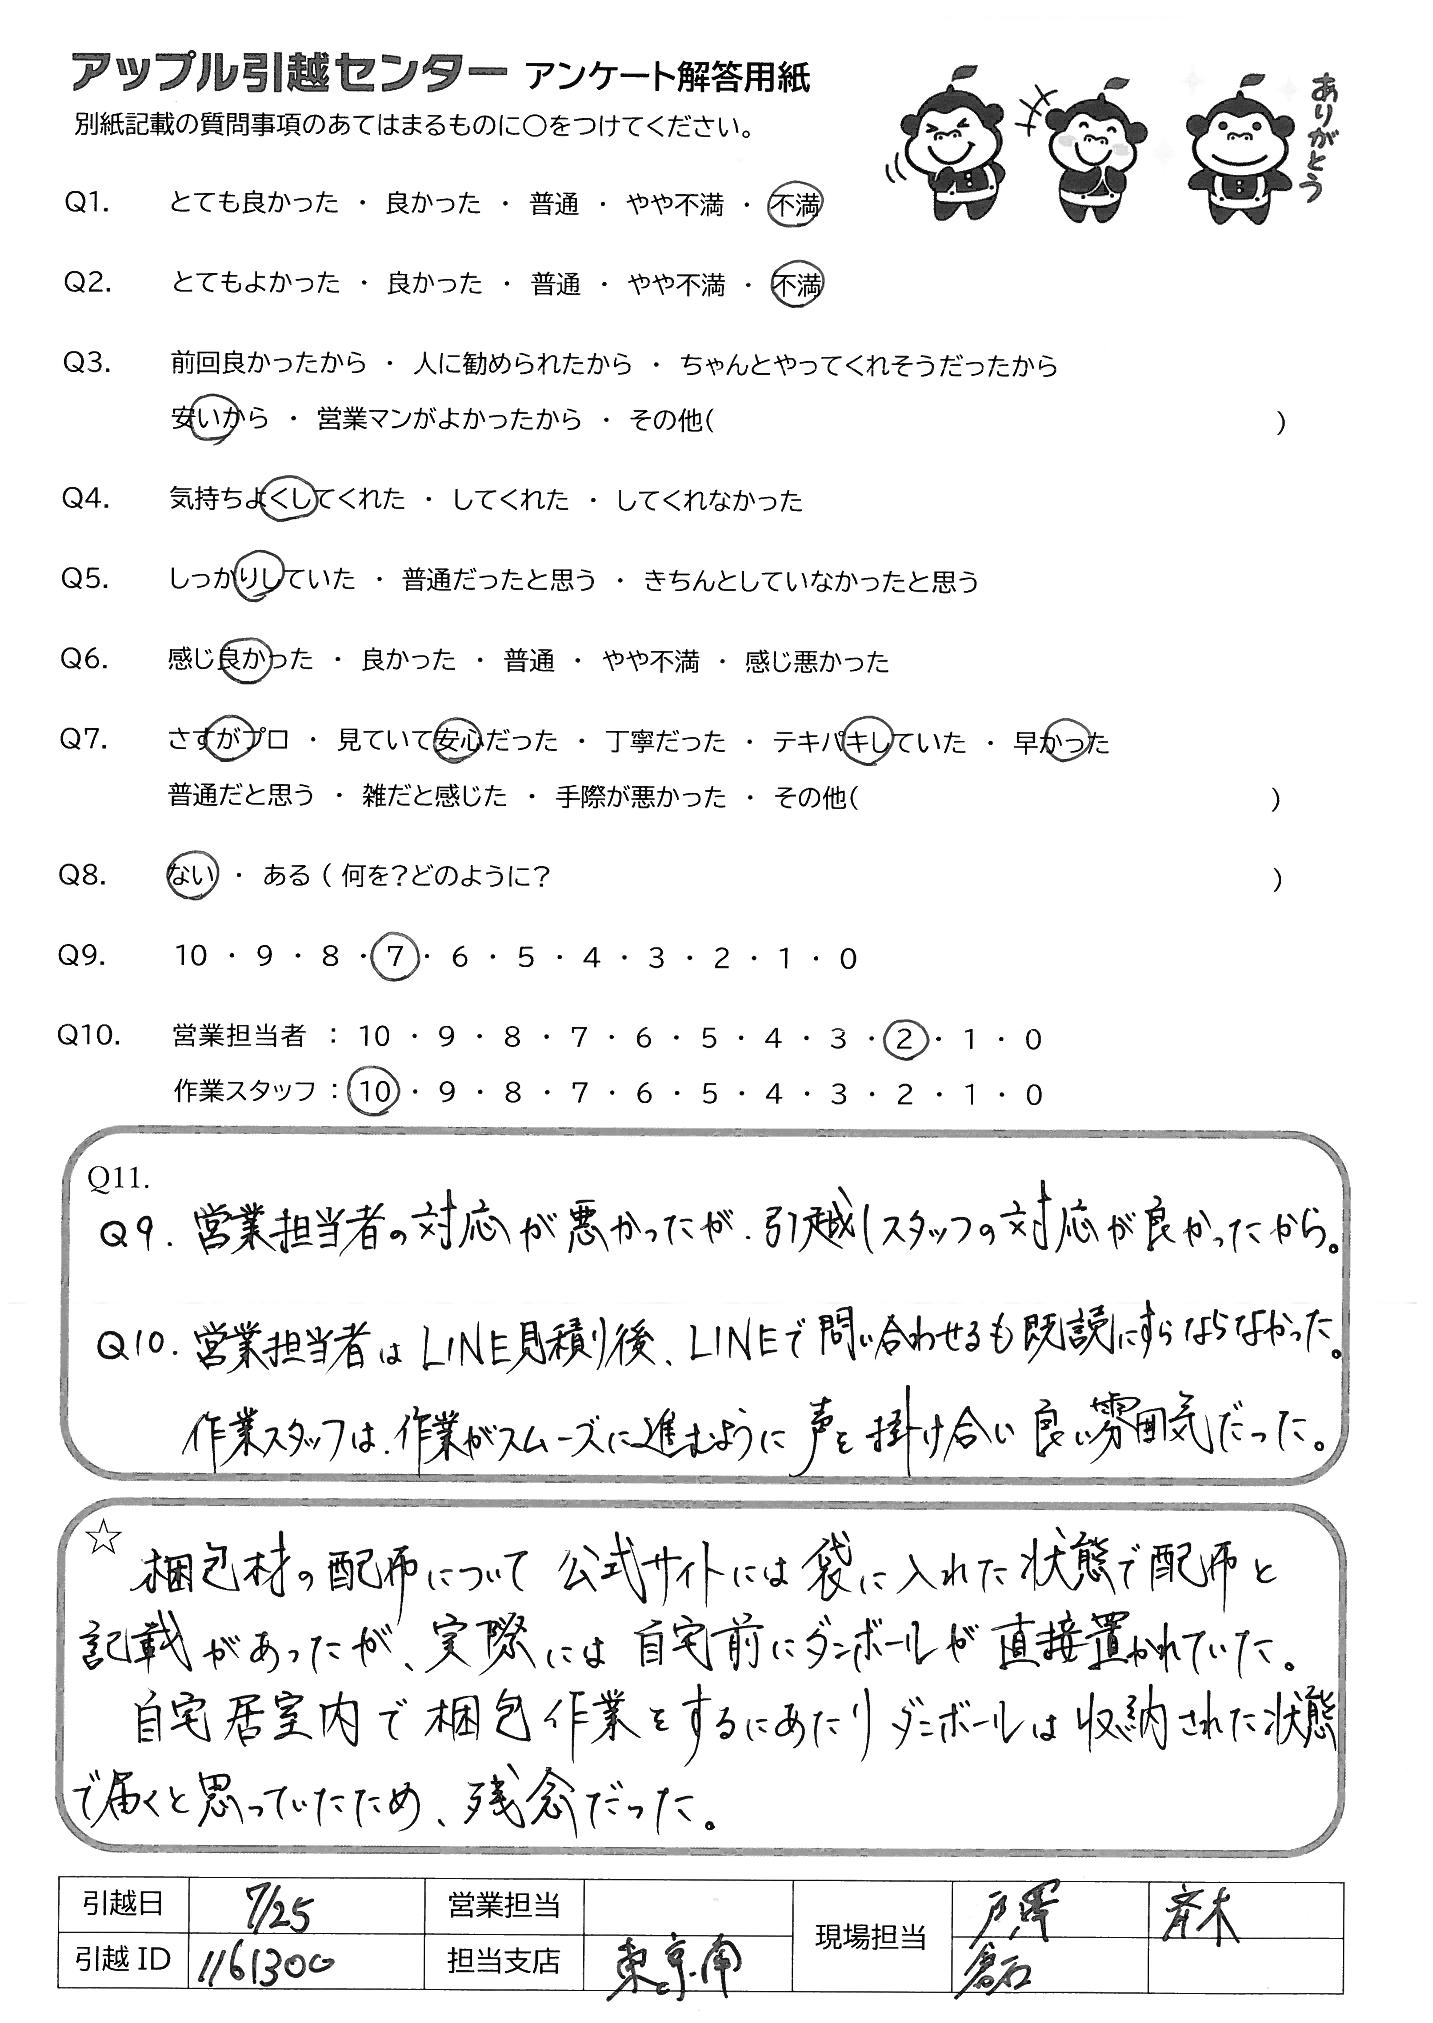 アップル引越センター アンケート解答用紙
別紙記載の質問事項のあてはまるものに○をつけてください。
ありがとう
Q1. とても良かった ・ 良かった ・ 普通 ・ やや不満 ・ 不満
Q2. とてもよかった ・ 良かった ・ 普通 ・ やや不満 ・ 不満
Q3. 前回良かったから ・ 人に勧められたから ・ ちゃんとやってくれそうだったから
安いから ・ 営業マンがよかったから ・ その他( )
Q4. 気持ちよくしてくれた ・ してくれた ・ してくれなかった
Q5. しっかりしていた ・ 普通だったと思う ・ きちんとしていなかったと思う
Q6. 感じ良かった ・ 良かった ・ 普通 ・ やや不満 ・ 感じ悪かった
Q7. さすがプロ ・ 見ていて安心だった ・ 丁寧だった ・ テキパキしていた ・ 早かった
普通だと思う ・ 雑だと感じた ・ 手際が悪かった ・ その他( )
Q8. ない ・ ある ( 何を?どのように? )
Q9. 10 ・ 9 ・ 8 ・ 7 ・ 6 ・ 5 ・ 4 ・ 3 ・ 2 ・ 1 ・ 0
Q10. 営業担当者 : 10 ・ 9 ・ 8 ・ 7 ・ 6 ・ 5 ・ 4 ・ 3 ・ 2 ・ 1 ・ 0
作業スタッフ : 10 ・ 9 ・ 8 ・ 7 ・ 6 ・ 5 ・ 4 ・ 3 ・ 2 ・ 1 ・ 0
Q11.
Q9. 営業担当者の対応が悪かったが、引越しスタッフの対応が良かったから。
Q10. 営業担当者はLINE見積り後、LINEで問い合わせるも既読にすらならなかった。
作業スタッフは、作業がスムーズに進むように声を掛け合い良い雰囲気だった。
☆ 梱包材の配布について公式サイトには袋に入れた状態で配布と
記載があったが、実際には自宅前にダンボールが直接置かれていた。
自宅居室内で梱包作業をするにあたりダンボールは収納された状態
で届くと思っていたため、残念だった。
引越日 7/25 営業担当 現場担当 戸澤 斉木
引越ID 1161300 担当支店 東京南 倉石